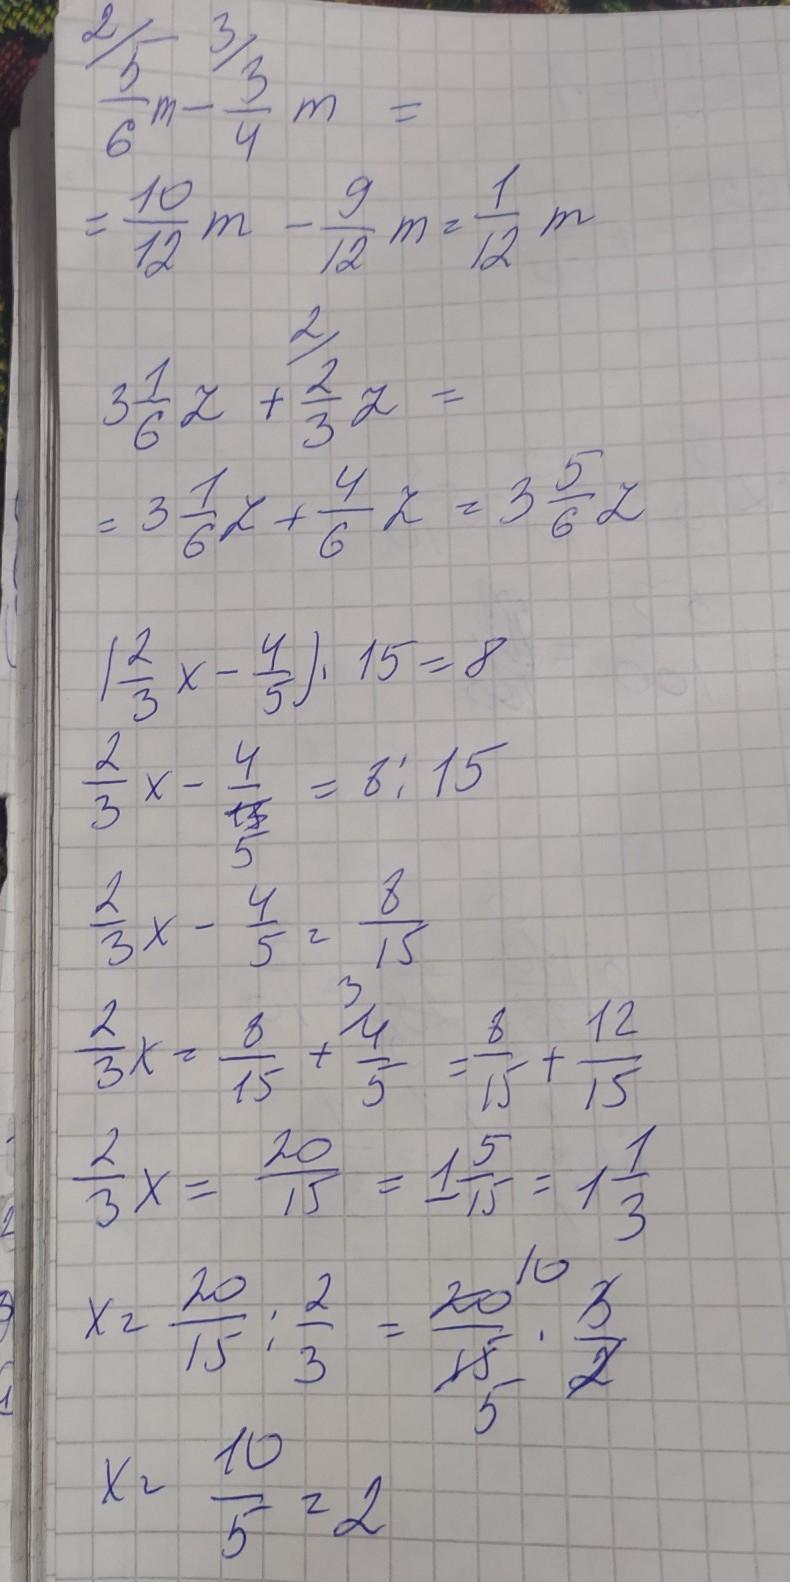 2/ 3/
5/6 m - 3/4 m =
= 10/12 m - 9/12 m = 1/12 m
2/
3 1/6 z + 2/3 z =
= 3 1/6 z + 4/6 z = 3 5/6 z
(2/3 x - 4/5) · 15 = 8
2/3 x - 4/5 = 8 : 15
2/3 x - 4/5 = 8/15
3
2/3 x = 8/15 + 4/5 = 8/15 + 12/15
2/3 x = 20/15 = 1 5/15 = 1 1/3
10
x = 20/15 : 2/3 = 20/15 · 3/2
5
x = 10/5 = 2